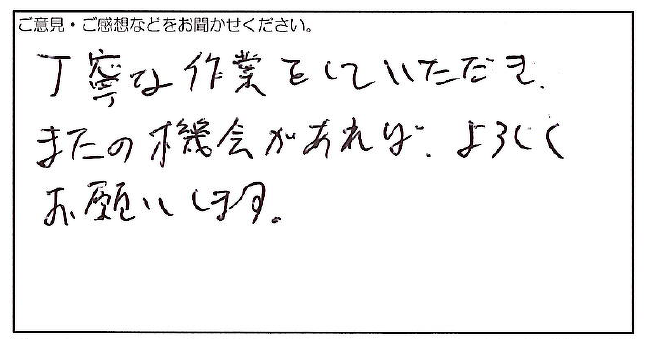 ご意見・ご感想などをお聞かせください。
丁寧な作業をしていただき、
またの機会があれば、よろしく
お願いします。